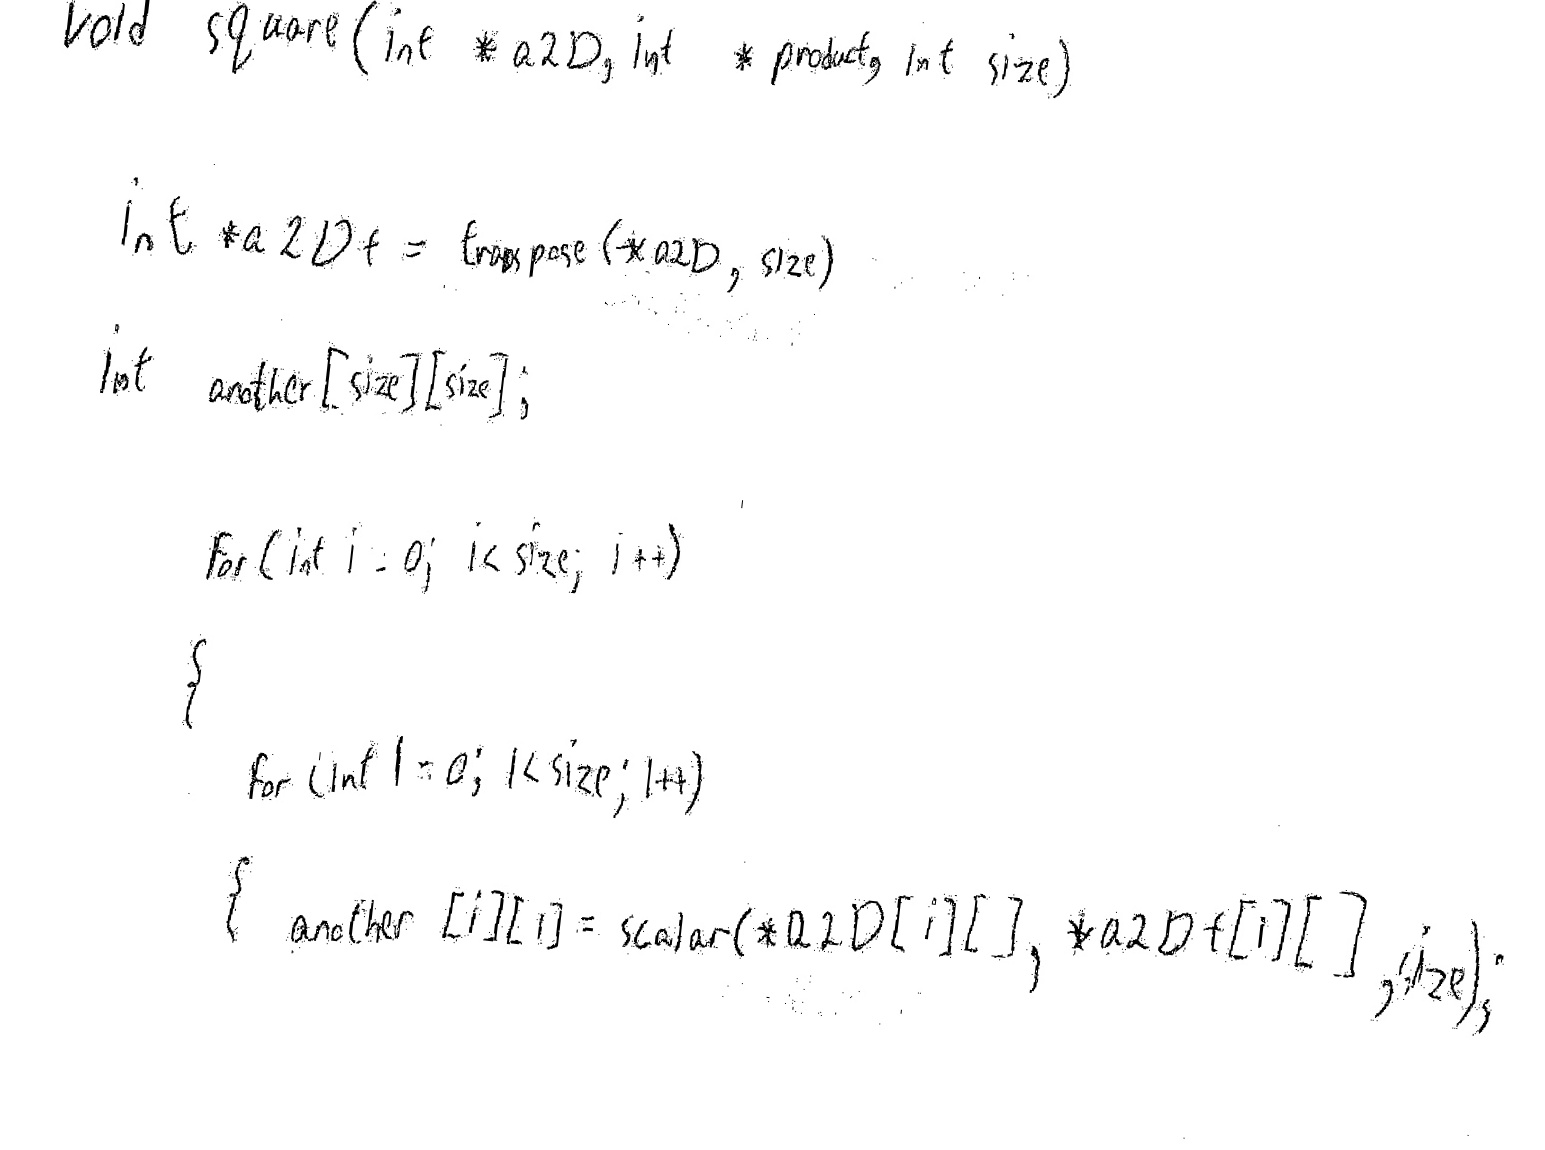 void square(int *a2D, int *product, int size)
int *a2Dt = transpose(*a2D, size)
int another[size][size];
for(int i=0; i<size; i++)
{
for(int l=0; l<size; l++)
{ another [i][l] = scalar(*a2D[i][], *a2Dt[l][], size);